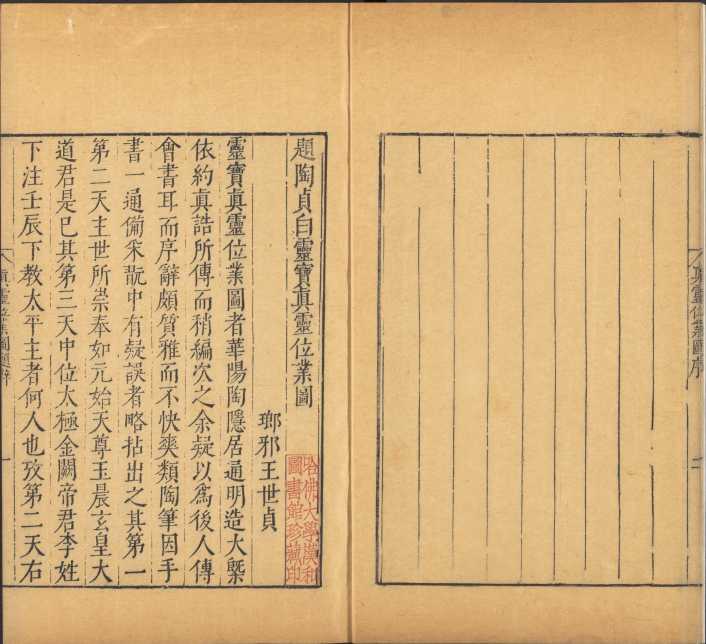 真靈位業圖序
二
題陶貞白靈寶真靈位業圖
瑯邪王世貞
哈佛大學漢和
圖書館珍藏印
靈寶真靈位業圖者華陽陶隱居通明造大槩
依約真誥所傳而稍編次之余疑以爲後人傳
會書耳而序辭頗質雅而不快爽類陶筆因手
書一通備采翫中有疑誤者略拈出之其第一
第二天主世所崇奉如元始天尊玉晨玄皇大
道君是已其第三天中位太極金闕帝君李姓
下注壬辰下教太平主者何人也攷第二天右
真靈位業圖題辭
一